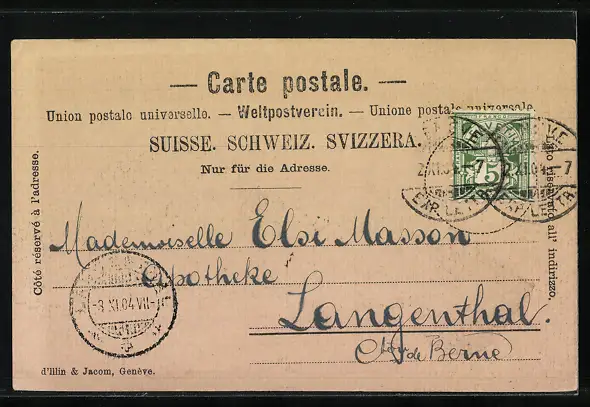 — Carte postale. —
Union postale universelle. — Weltpostverein. — Unione postale universale.
SUISSE. SCHWEIZ. SVIZZERA.
Nur für die Adresse.
Côté réservé à l'adresse.
riservato all' indirizzo.
FRANCO
5
2.XI.04.-7
2.XI.04.-7
EXP. LETTR.
EXP. LETTR.
Mademoiselle Elsi Masson
Apotheke
Langenthal.
Cton de Berne
-3.XI.04.VII-
d'Illin & Jacom, Genève.